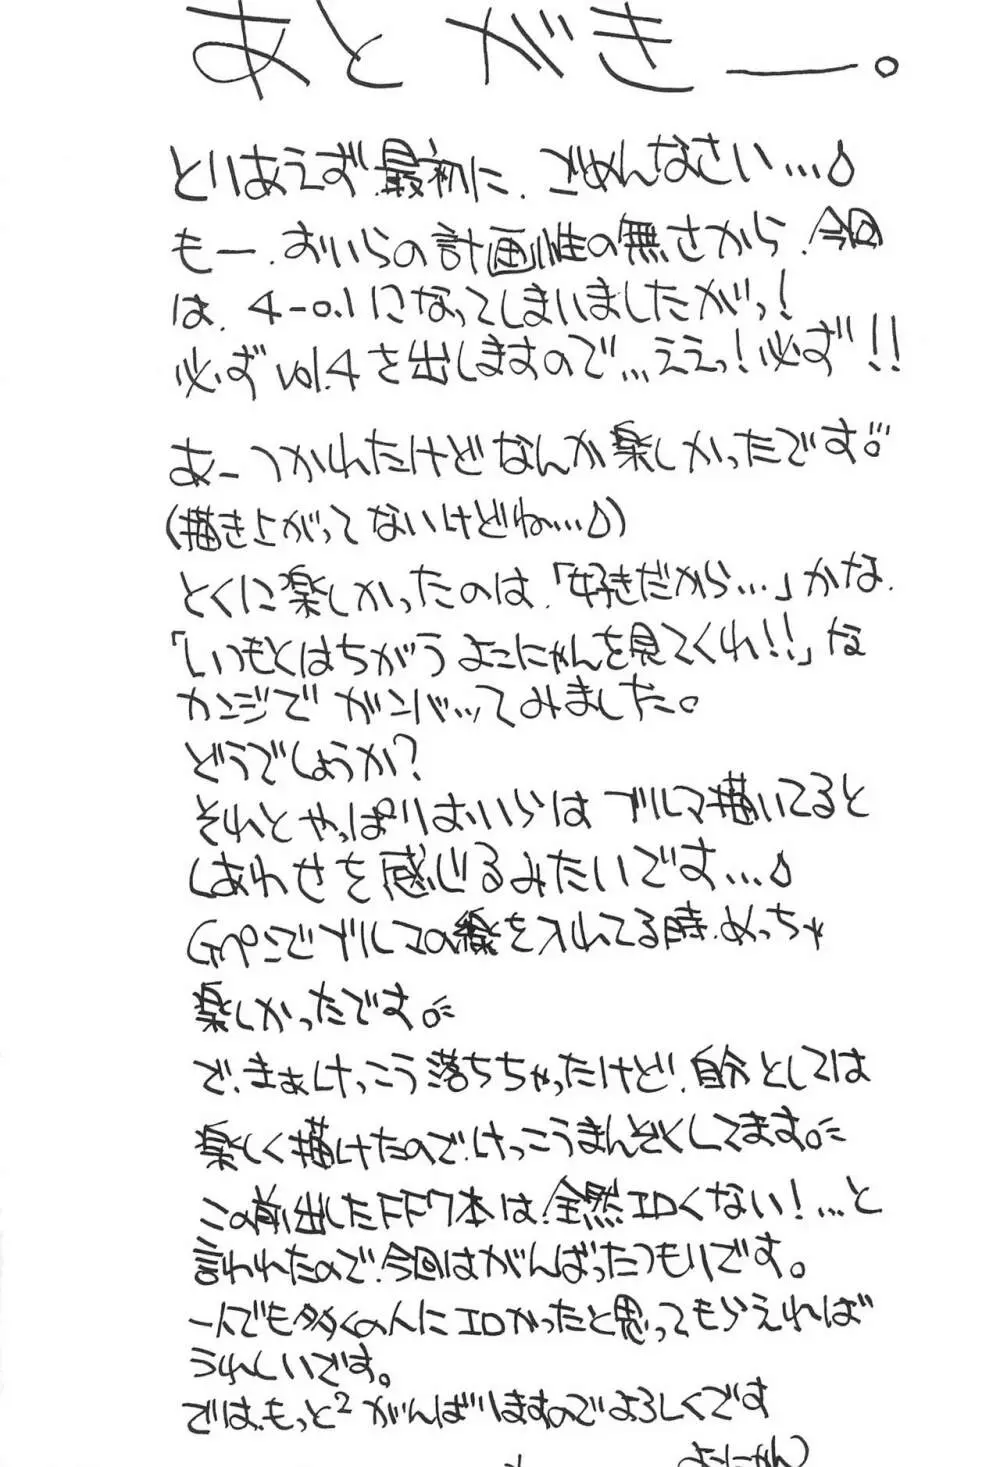 あとがきー。
とりあえず、最初に、ごめんなさい…
もー、おいらの計画性の無さから、今回
は、4-0.1になってしまいましたがっ!
必ずvol.4を出しますので…ええっ!必ず!!
あーつかれたけどなんか楽しかったです。
(描き上がってないけどね…)
とくに楽しかったのは、「好きだから…」かな、
「いつもとはちがうよこにゃんを見てくれ!!」な
カンジでガンバッてみました。
どうでしょうか?
それとやっぱりおいらはブルマ描いてると
しあわせを感じるみたいです…
Gペンでブルマの線を入れてる時、めっちゃ
楽しかったです。
で、まぁけっこう落ちちゃったけど、自分としては
楽しく描けたので、けっこうまんぞくしてます。
この前出したFF7本は、全然エロくない!…と
言われたので、今回はがんばったつもりです。
一人でも多くの人にエロかったと思ってもらえれば
うれしいです。
では、もっと²がんばりますのでよろしくです
よこにゃん